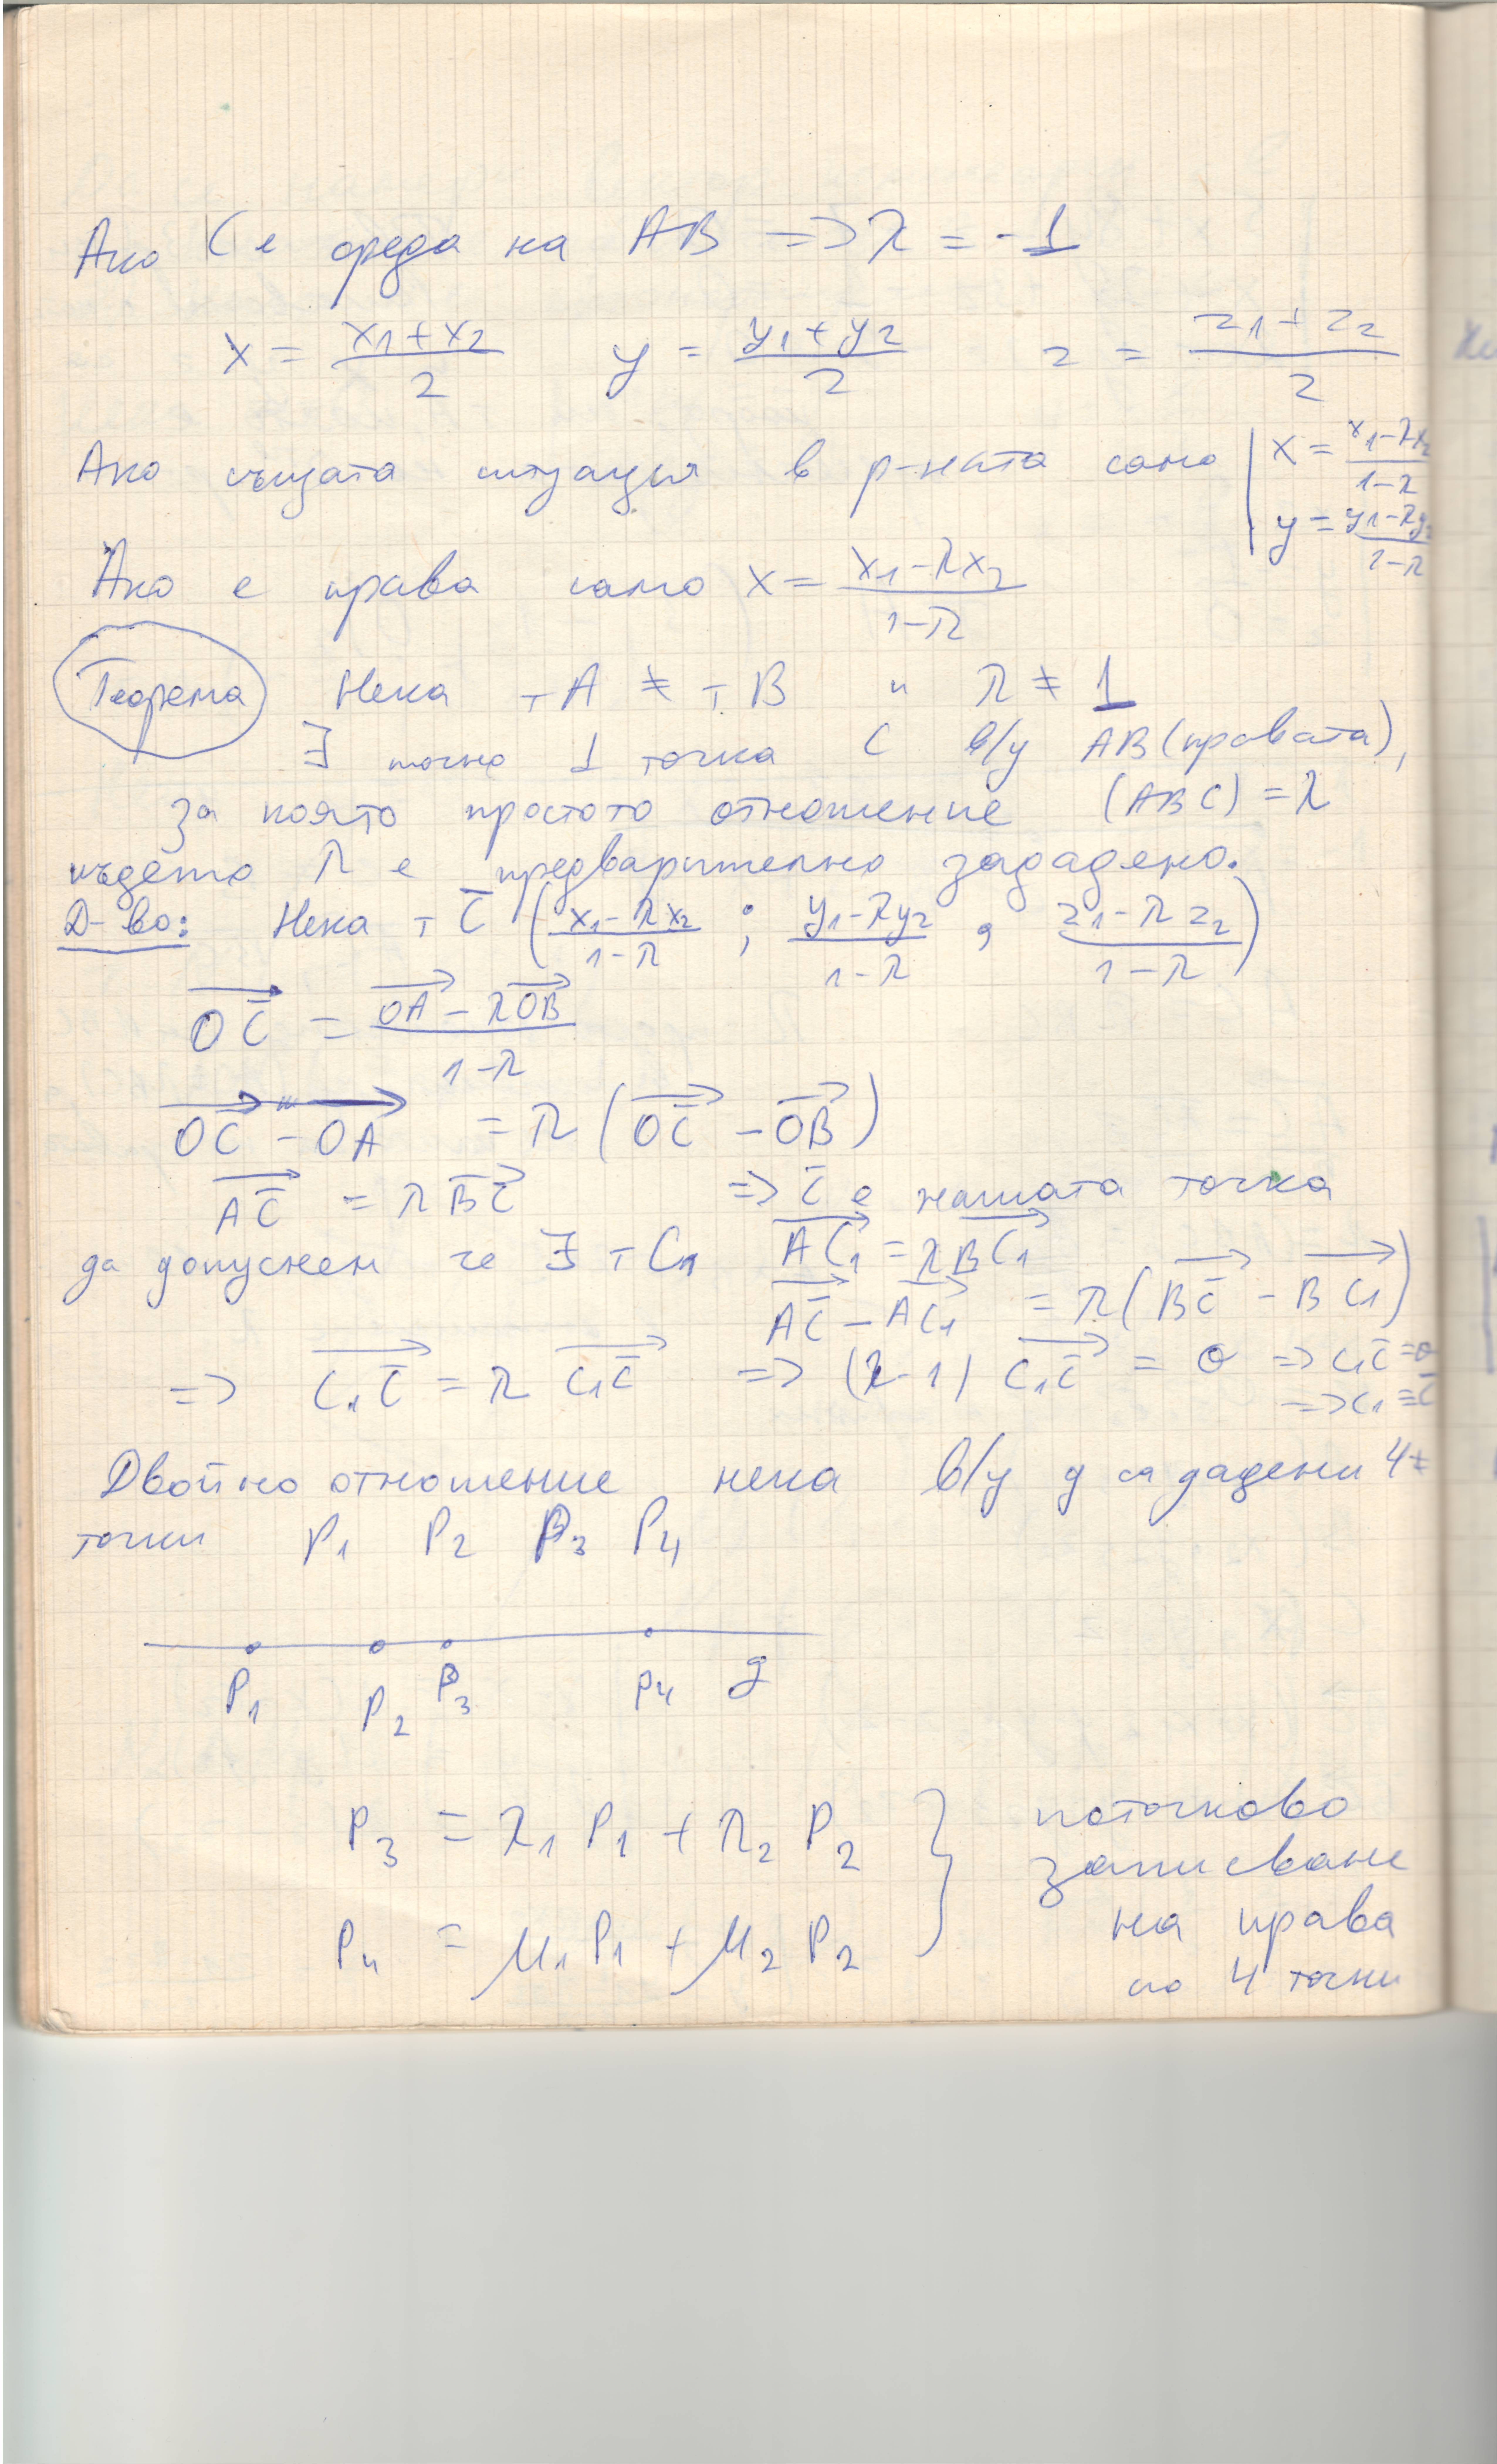 Ако C е среда на AB => λ = -1
x = (x₁+x₂)/2   y = (y₁+y₂)/2   z = (z₁+z₂)/2
Ако същата ситуация в р-ната само | x = (x₁-λx₂)/(1-λ)
y = (y₁-λy₂)/(1-λ)
Ако е права само x = (x₁-λx₂)/(1-λ)
Теорема Нека т A ≠ т B и λ ≠ 1
∃ точно 1 точка C в/у AB (правата),
за която простото отношение (ABC) = λ
където λ е предварително зададено.
Д-во: Нека т C̄ ((x₁-λx₂)/(1-λ) ; (y₁-λy₂)/(1-λ) , (z₁-λz₂)/(1-λ))
OC̄ = (OA - λOB)/(1-λ)
OC̄ - OA = λ(OC̄ - OB)
AC̄ = λ BC̄ => C̄ е нашата точка
да допуснем че ∃ т C₁ AC₁ = λBC₁
AC̄ - AC₁ = λ(BC̄ - BC₁)
=> C₁C̄ = λ C₁C̄ => (λ-1) C₁C̄ = 0 => C₁C̄ = 0
=> C₁ ≡ C̄
Двойно отношение нека в/у g са дадени 4
точки P₁ P₂ P₃ P₄
P₁ P₂ P₃ P₄ g
P₃ = λ₁ P₁ + λ₂ P₂ } поточково
записване
P₄ = μ₁ P₁ + μ₂ P₂ на права
по 4 точки